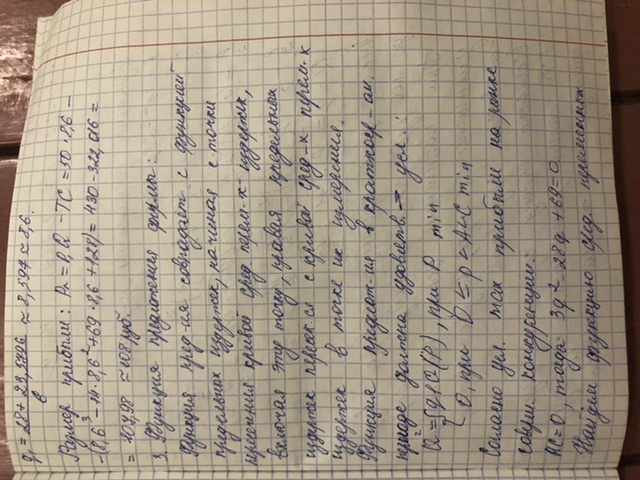 q₁ = 28 + 23,5796 / 6 ≈ 8,597 ≈ 8,6.
Размер прибыли: Pr = P₁Q - TC = 50 · 8,6 -
- (8,6³ - 14 · 8,6² + 69 · 8,6 + 128) = 430 - 322,016 =
= 107,98 ≈ 108 руб.
3. Функция предложения фирмы:
Функция пред-ия совпадает с функцией
предельных издержек, начиная с точки
пресечения кривой сред. перем-х издержек,
включая эту точку, кривая предельных
издержек пересек-ся с кривой сред-х перем-х
издержек в точке их
Функция предлож-ия в краткоср-ом
периоде должна удовлетв. усл.:
Q = {q(P), при P min
{0, при 0 ≤ p < AVC min
Согласно усл. max прибыли на рынке
соверш. конкуренции:
MC=0, тогда 3q² - 28q + 69 = 0.
Найдём функцию сред. переменных